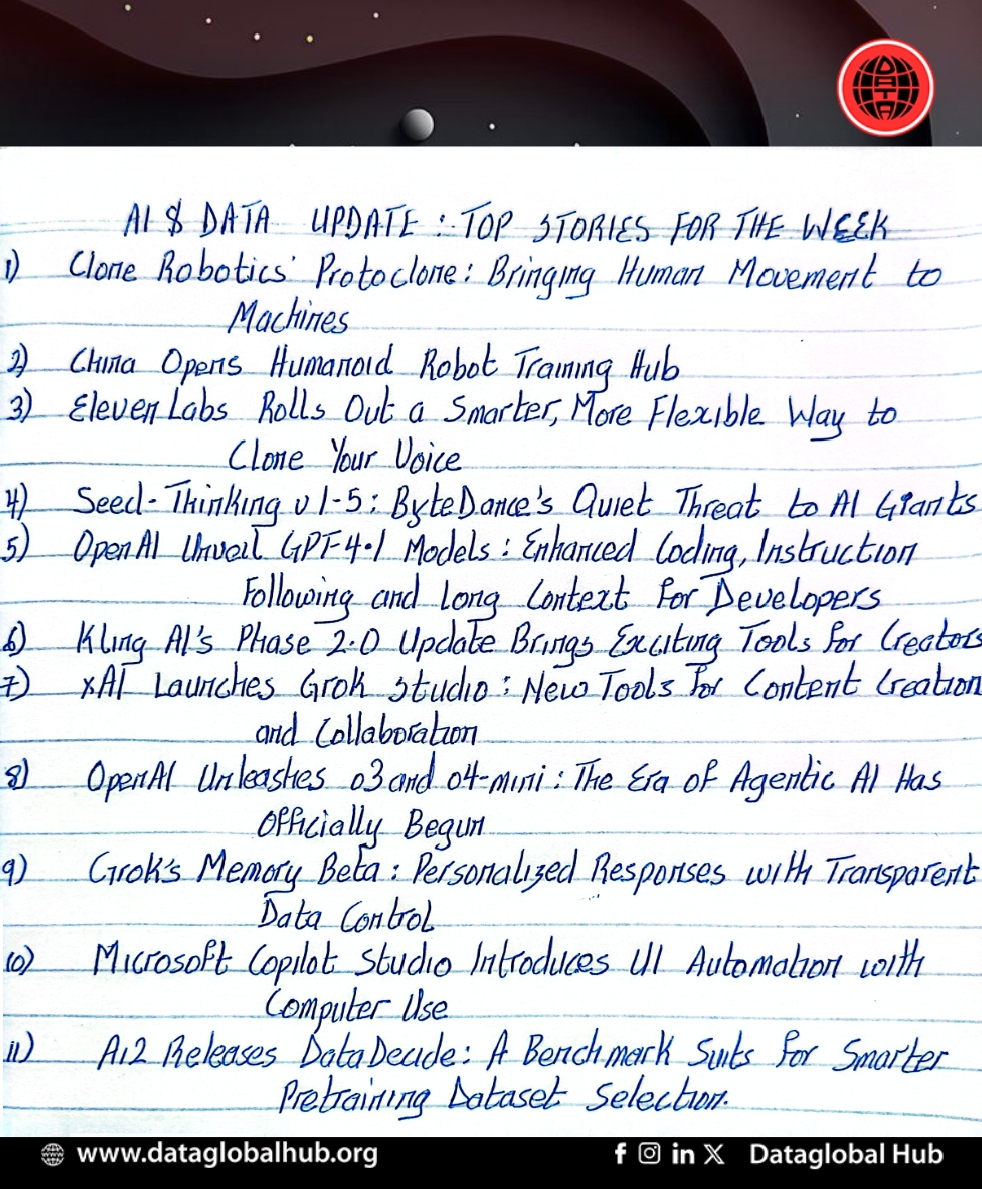 DATA
AI & DATA UPDATE : TOP STORIES FOR THE WEEK
1) Clone Robotics' Protoclone: Bringing Human Movement to
Machines
2) China Opens Humanoid Robot Training Hub
3) ElevenLabs Rolls Out a Smarter, More Flexible Way to
Clone Your Voice
4) Seed-Thinking v1-5: ByteDance's Quiet Threat to AI Giants
5) OpenAI Unveil GPT-4.1 Models : Enhanced Coding, Instruction
Following and Long Context for Developers
6) Kling AI's Phase 2.0 Update Brings Exciting Tools for Creators
7) xAI Launches Grok Studio : New Tools for Content Creation
and Collaboration
8) OpenAI Unleashes o3 and o4-mini : The Era of Agentic AI Has
Officially Begun
9) Grok's Memory Beta : Personalized Responses with Transparent
Data Control
10) Microsoft Copilot Studio Introduces UI Automation with
Computer Use
11) Ai2 Releases DataDecide: A Benchmark Suits for Smarter
Pretraining Dataset Selection.
www.dataglobalhub.org
f in X Dataglobal Hub